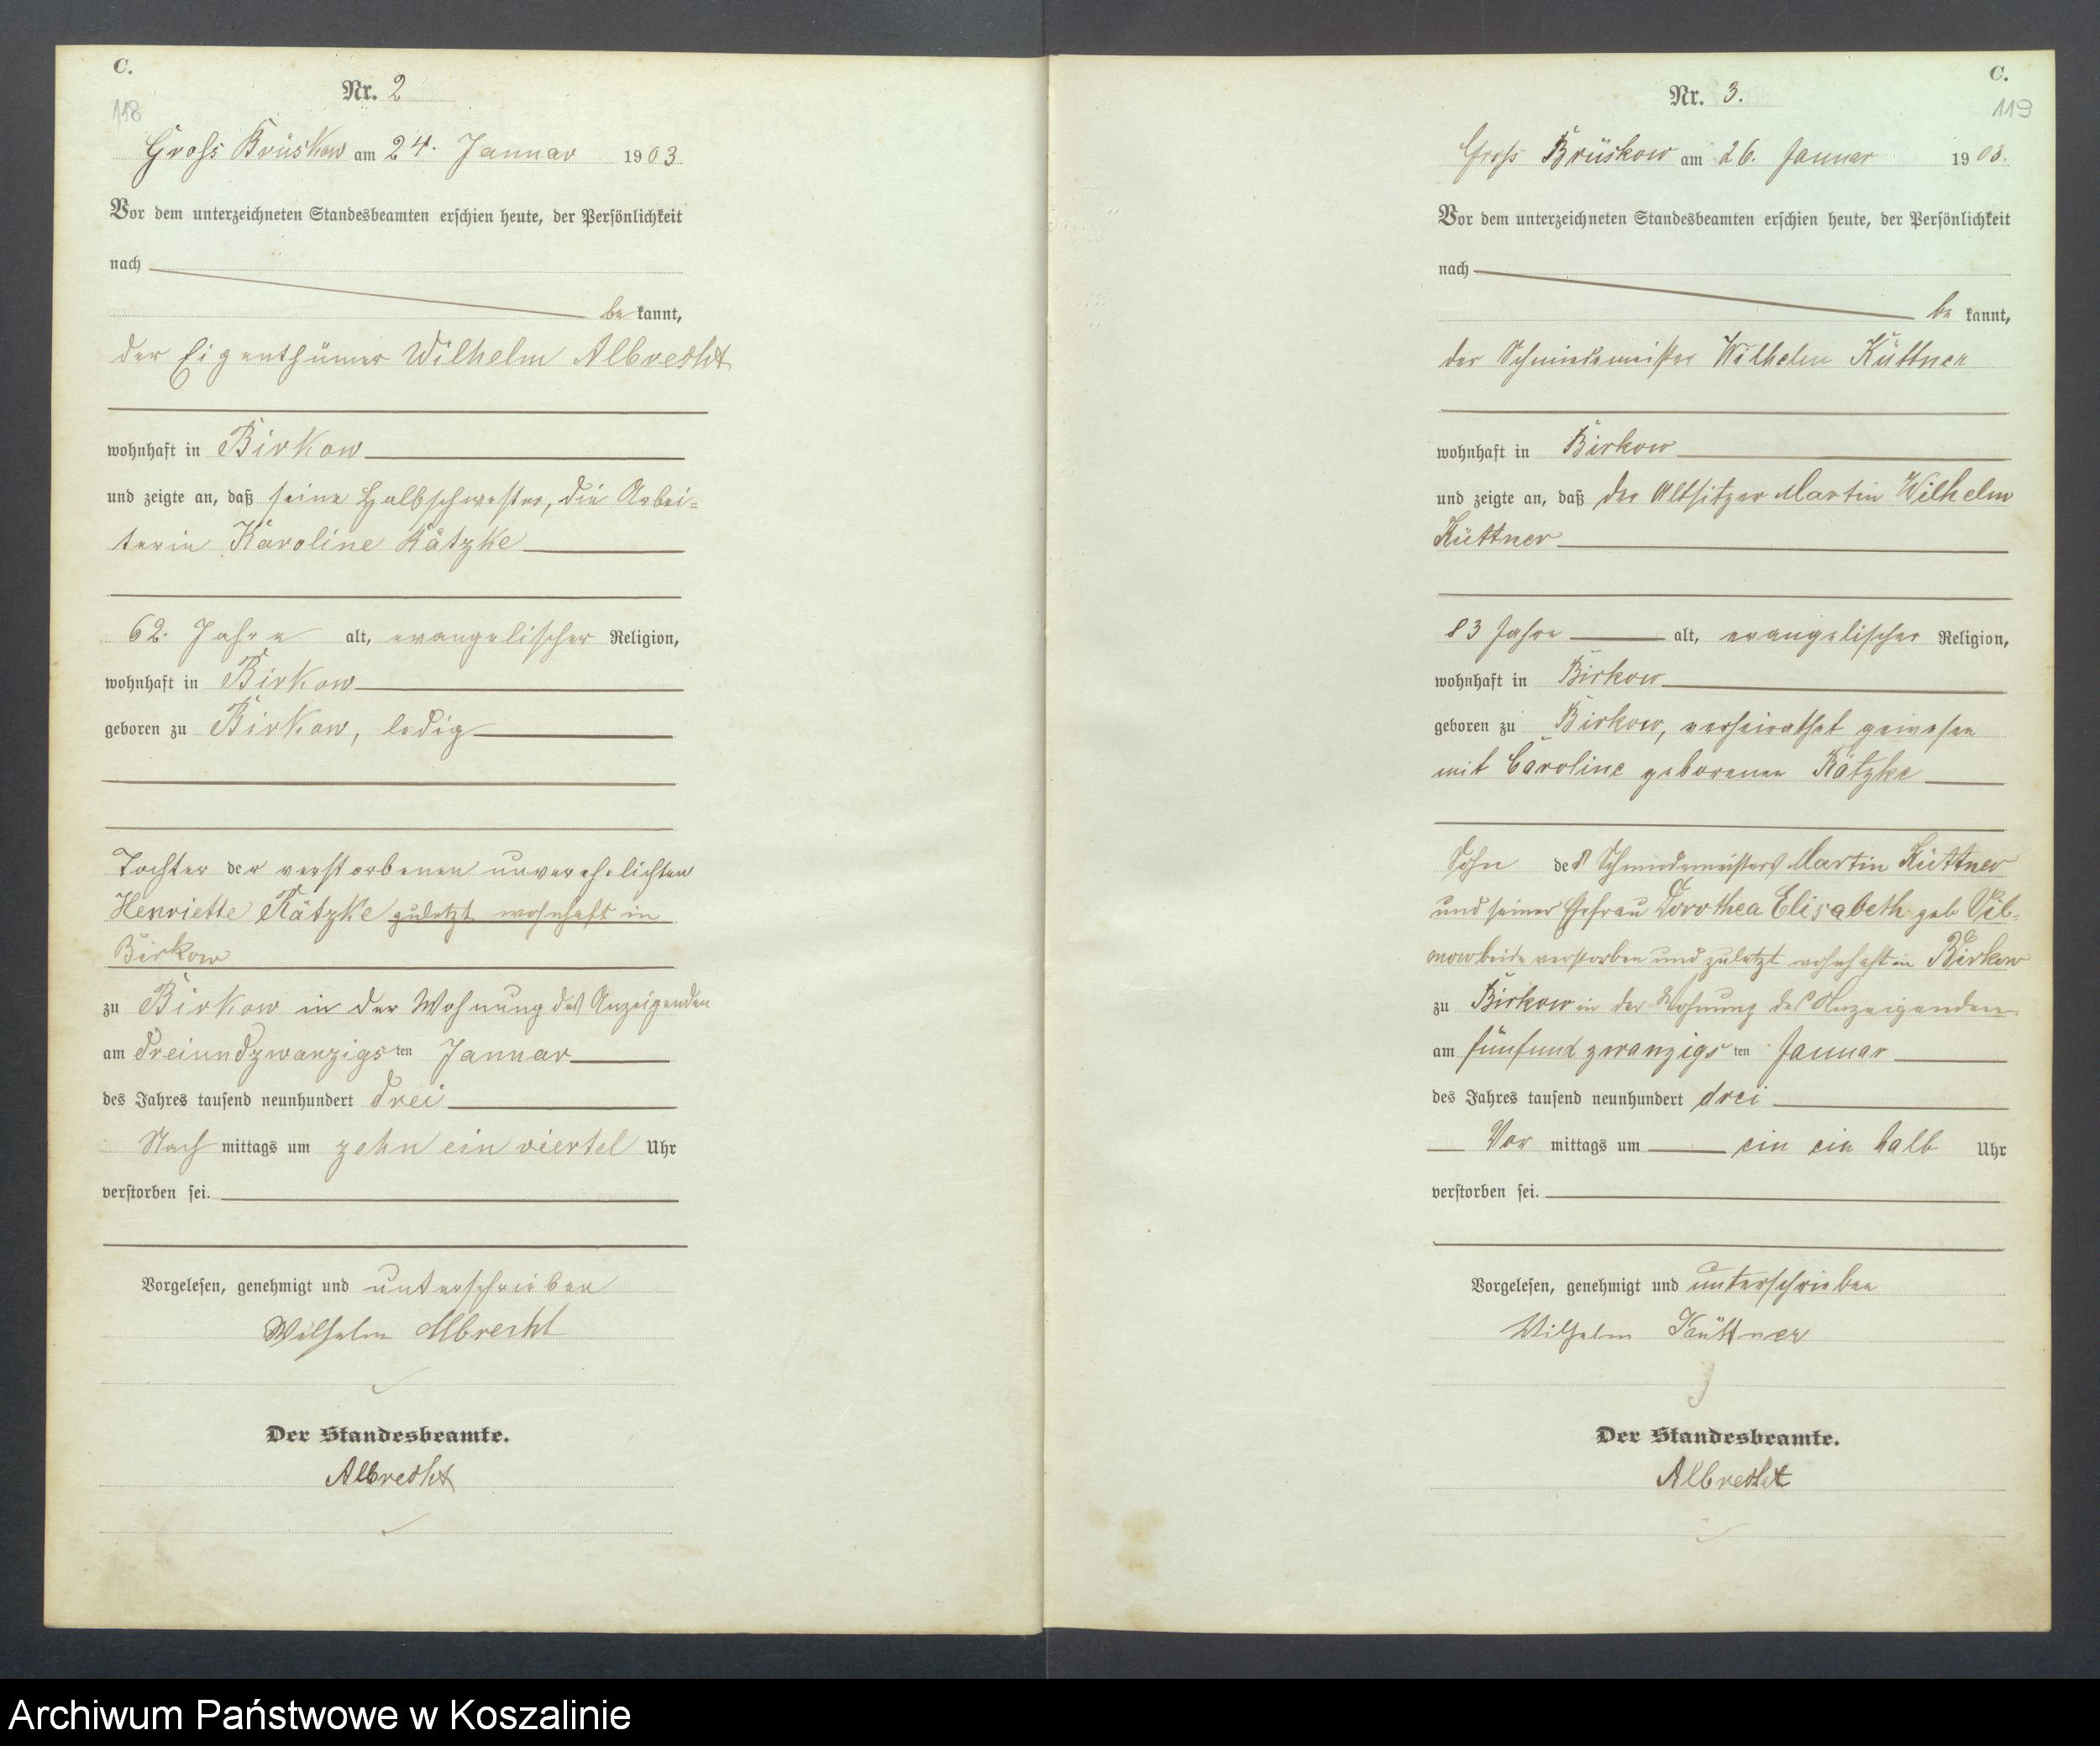 C.
118
Nr. 2
Gross Brüskow am 24. Januar 1903
Vor dem unterzeichneten Standesbeamten erschien heute, der Persönlichkeit
nach
be kannt,
der Eigenthümer Wilhelm Albrecht
wohnhaft in Birkow
und zeigte an, daß seine Halbschwester, die Arbei=
terin Karoline Kätzke
62. Jahre alt, evangelischer Religion,
wohnhaft in Birkow
geboren zu Birkow, ledig
Tochter der verstorbenen unverehelichten
Henriette Kätzke zuletzt wohnhaft in
Birkow
zu Birkow in der Wohnung des Anzeigenden
am dreiundzwanzigsten Januar
des Jahres tausend neunhundert drei
Nach mittags um zehn ein viertel Uhr
verstorben sei.
Vorgelesen, genehmigt und unterschrieben
Wilhelm Albrecht
Der Standesbeamte.
Albrecht
C.
119
Nr. 3.
Gross Brüskow am 26. Januar 1903.
Vor dem unterzeichneten Standesbeamten erschien heute, der Persönlichkeit
nach
be kannt,
der Schmiedemeister Wilhelm Küttner
wohnhaft in Birkow
und zeigte an, daß der Altsitzer Martin Wilhelm
Küttner
83 Jahre alt, evangelischer Religion,
wohnhaft in Birkow
geboren zu Birkow, verheirathet gewesen
mit Caroline geborenen Kätzke
Sohn des Schmiedemeisters Martin Küttner
und seiner Ehefrau Dorothea Elisabeth geb Vil=
mow beide verstorben und zuletzt wohnhaft in Birkow
zu Birkow in der Wohnung des Anzeigenden
am fünfund zwanzigsten Januar
des Jahres tausend neunhundert drei
Vor mittags um ein ein halb Uhr
verstorben sei.
Vorgelesen, genehmigt und unterschrieben
Wilhelm Küttner
Der Standesbeamte.
Albrecht
Archiwum Państwowe w Koszalinie